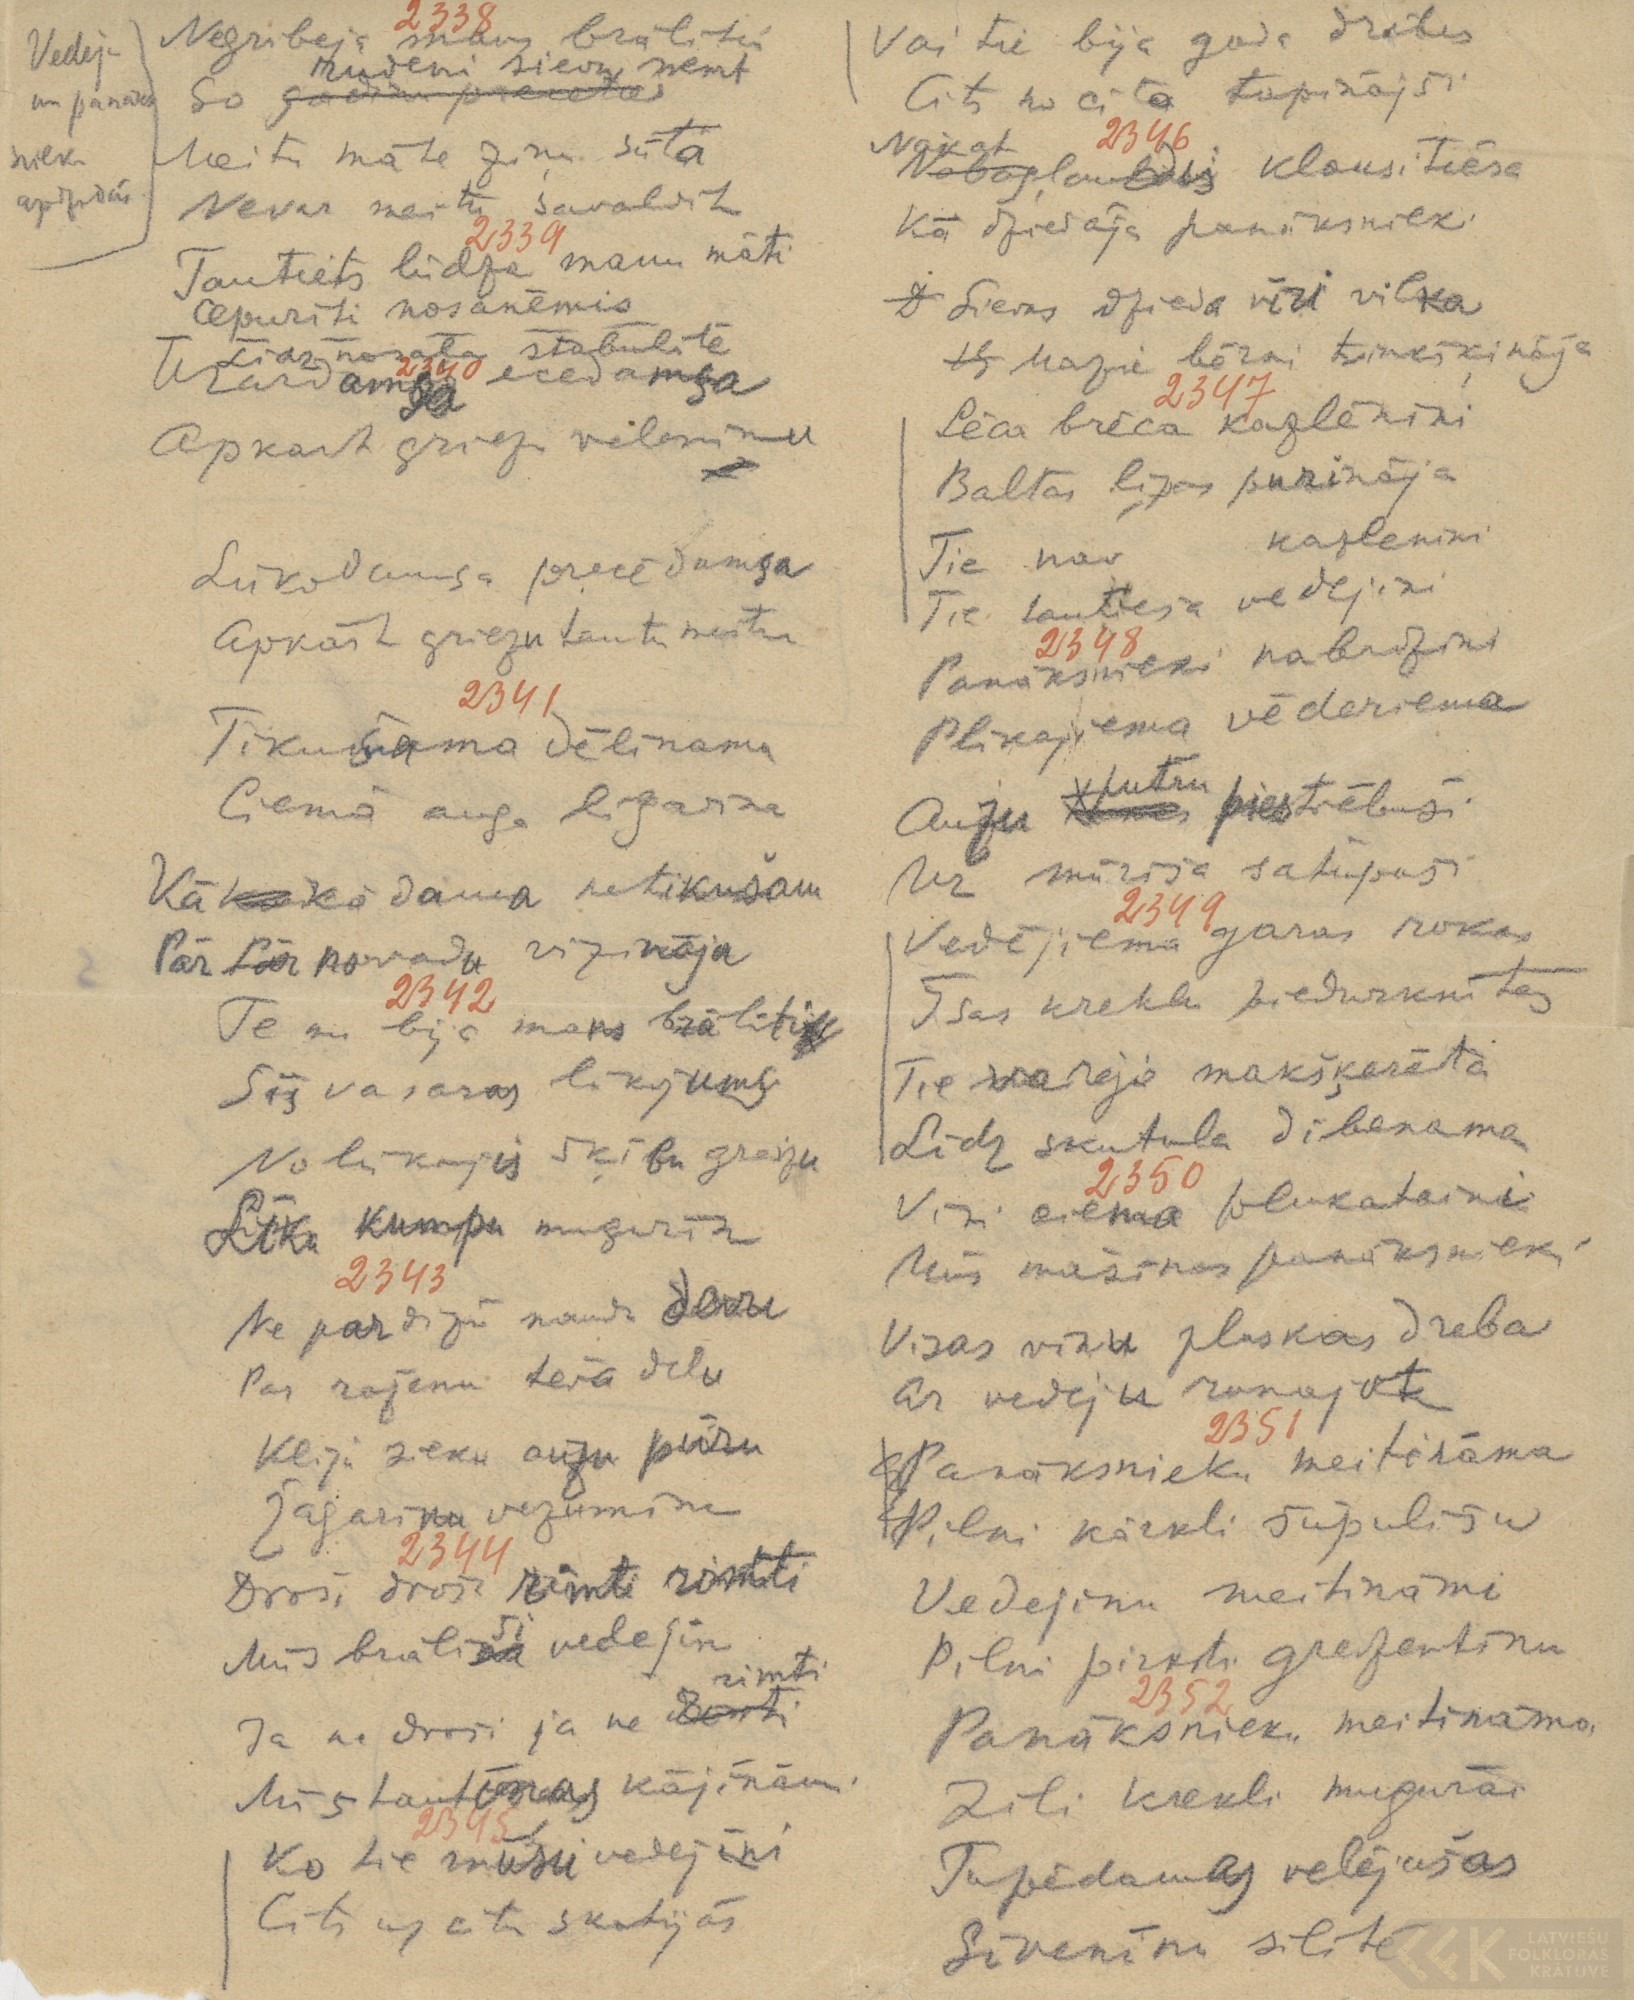 Vedēju
un panāks
nieku
apdzied.
2338
Negribēja mans brālītis
rudeni sievu ņemt
So
Meitu māte ziņu sūta
Nevar meitu savaldīt
2339
Tautiets lūdza manu māti
Cepurīti nosaņēmis
Līdz stabulīte
2340
Uzardamsa ecedamsa
Apkārt griežu velēniņu
Lūkodamsa precēdamsa
Apkārt griežu tautu meitu
2341
Tikušama dēliņama
Ciemā auga līgaviņa
Kā dama netikušam
Pār novadu vizināja
2342
Te nu bija mans brālītis
Šīs vasaras lūkojums
Nolūkojis šķību greizu
Līku kumpu muguriņu
2343
Ne pardizu naudu devu
Par raženu tēva dēlu
Kliju sieku auzu pūru
Žagariņu vezumiņu
2344
Droši droši rimti rimti
Mūs brāliši vedējiņi
rimti
Ja ne droši ja ne
Mūs tautiņas kājiņām
2345
Ko tie mūsu vedejiņi
Cits uz citu skatijās
Vai tie bija goda drēbes
Cits no cita tapinājši
2346
Nākat klausitiēsa
Kā dziedāja panāksnieki
Sievas dzieda vīri vilka
Mazie bērni trinkšķināja
2347
Lēca brēca kazlēniņi
Baltas lipas purināja
Tie nav kazleniņi
Tie tautieša vedējiņi
2348
Panāksnieki nabadziņi
Plikajiema vēderiema
Auzu putru piestrēbuši
Uz mūrīša satupuši
2349
Vedējiema garas rokas
Īsas kreklu piedurknītes
Tie varēja makšķerēta
Līdz skutula dibenama
2350
Visi ciema plukatainie
Mūs māsiņas panāksnieki
Visas viņu pluskas dreba
Ar vedēju runajot
2351
Panāksnieku meitiņāma
Pilni kārkli šūpulīšu
Vedejiņu meitiņāmi
Pilni pirksti gredzentiņu
2352
Panāksnieku meitiņāma
Zili krekli mugurāi
Tupēdamas velējušas
Sivēniņu silītē
LATVIEŠU
FOLKLORAS
KRĀTUVE